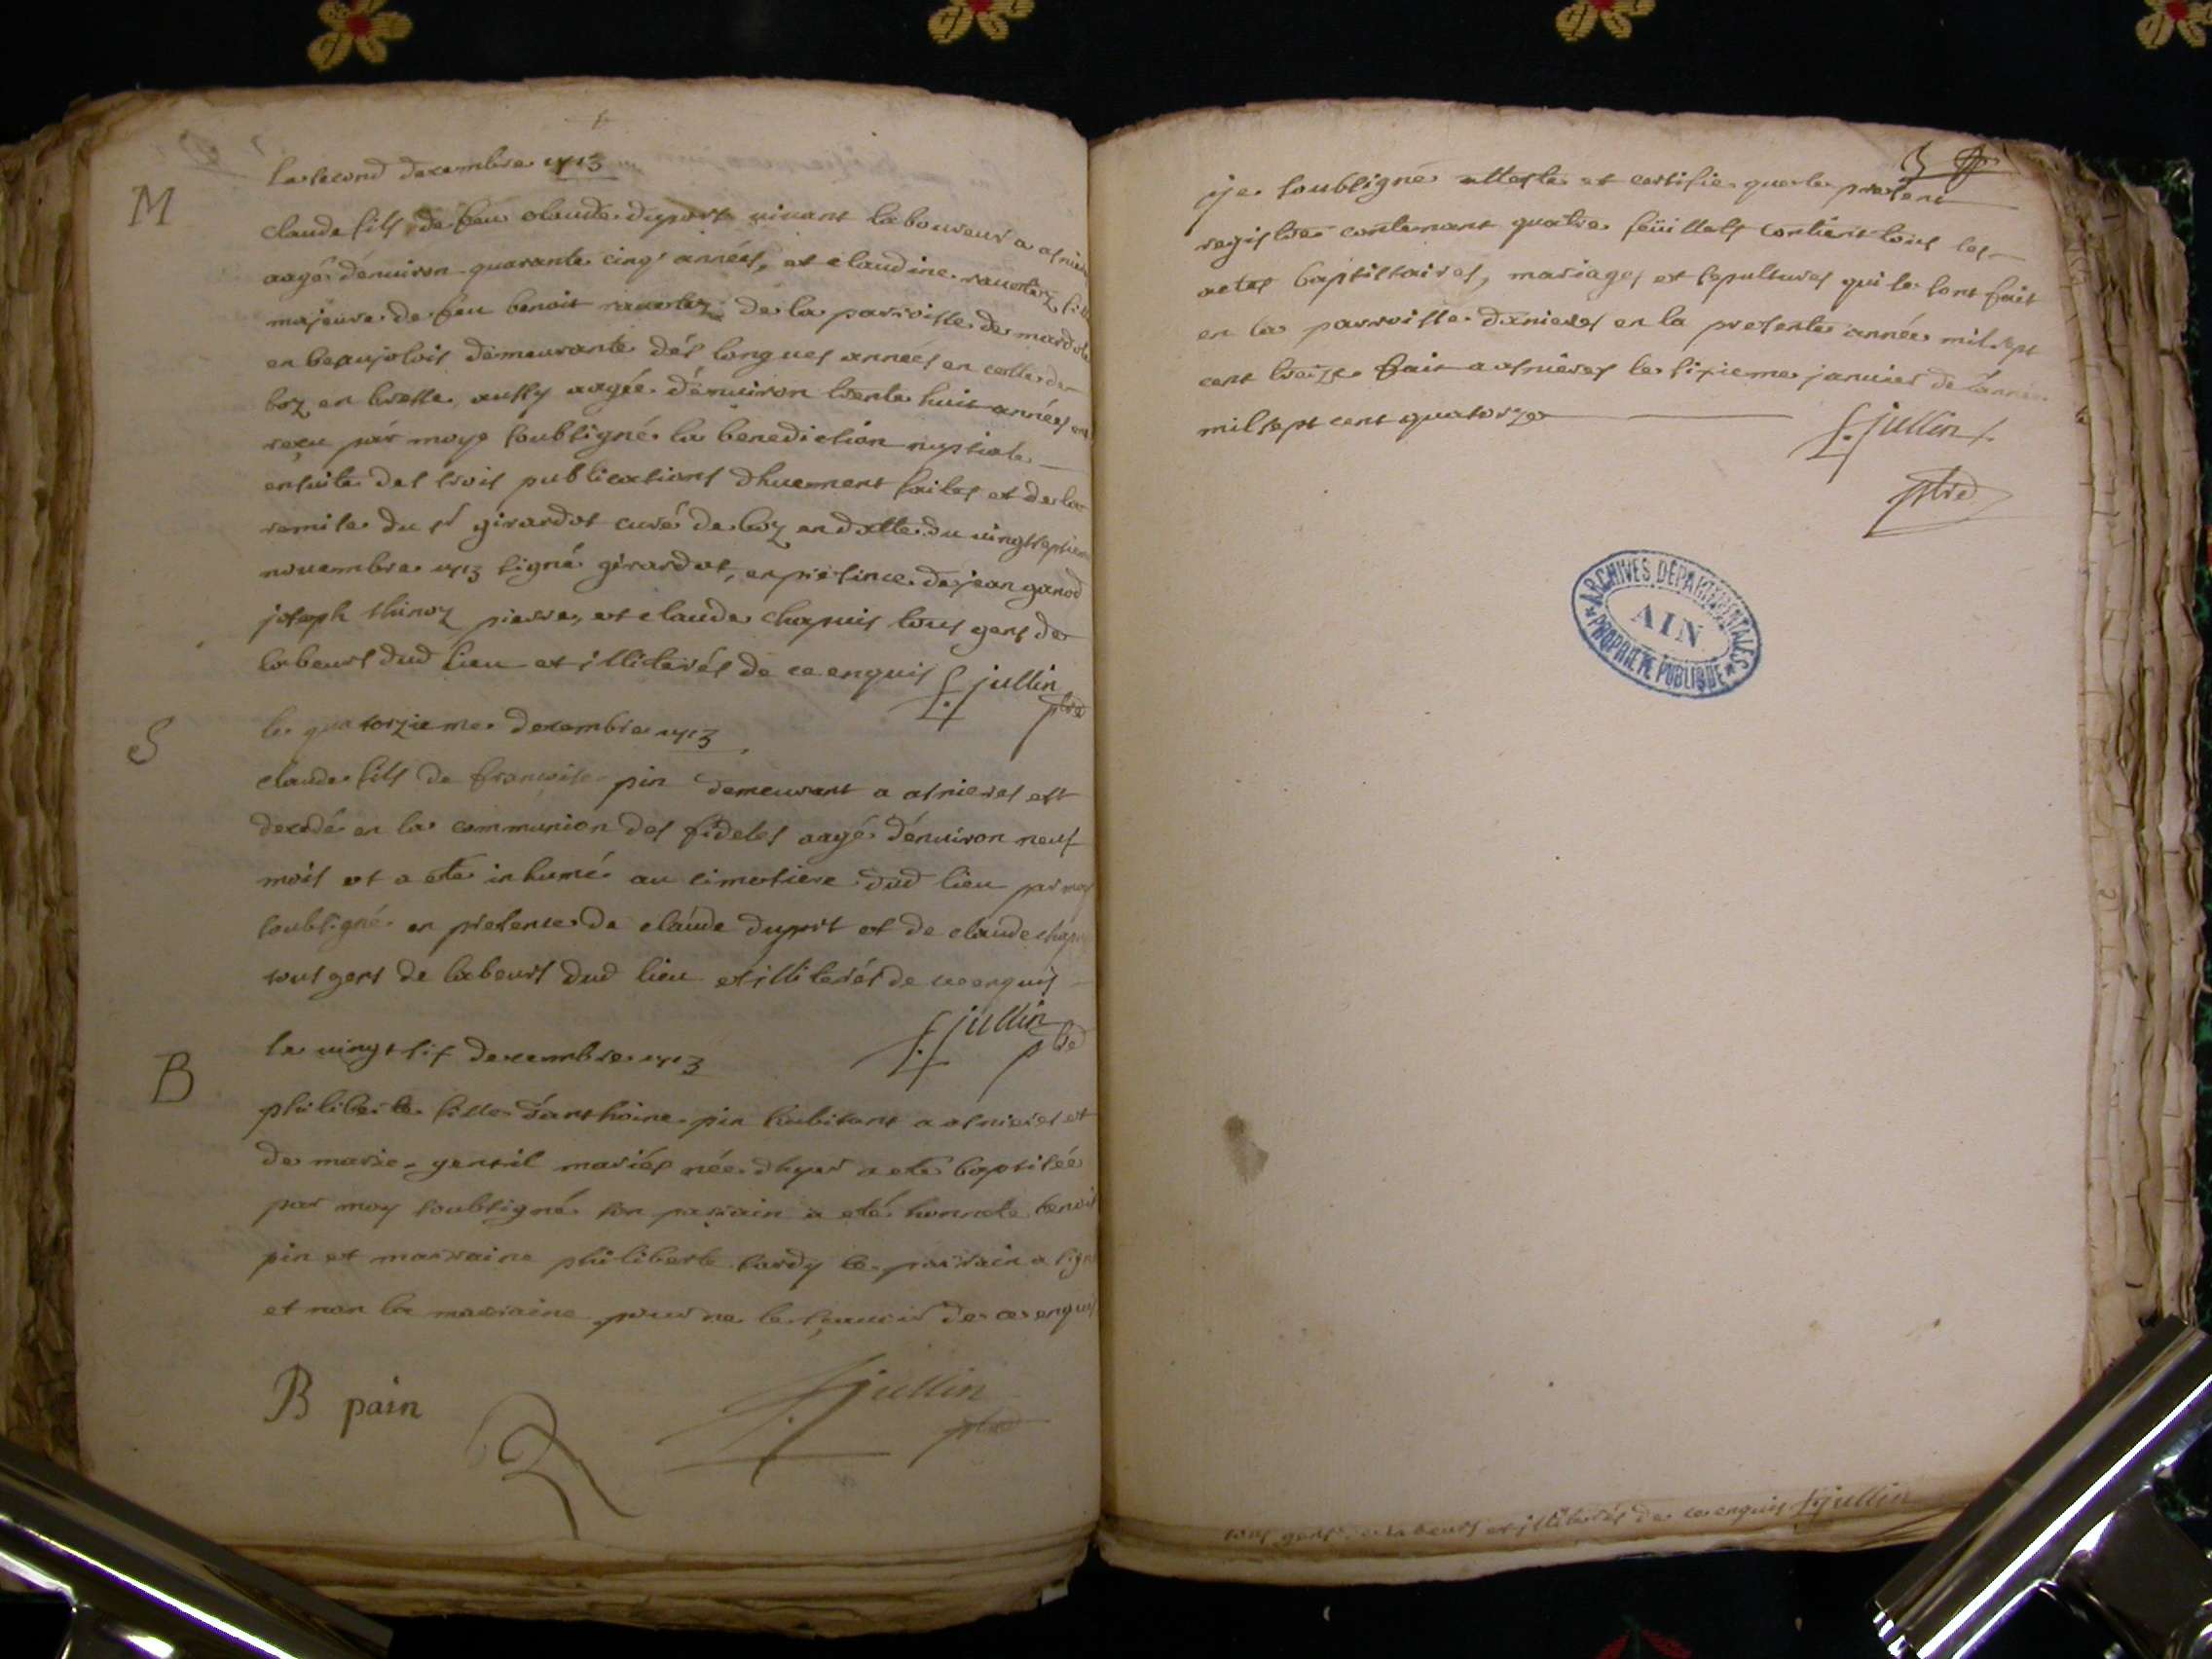 M
le second decembre 1713
claude fils de feu claude duport vivant laboureur a asnieres
aagé d'environ quarante cinq années, et claudine
majeure de feu benoit de la parroisse de
en beaujolois demeurante dés longues années en celle de
boz en bresse, aussy aagée d'environ trente huit années ont
reçu par moye soubsigné la benediction nuptiale
ensuite des trois publications dhuement faites et de la
remise du sr girardot curé de boz en datte du vingtseptieme
novembre 1713 signé girardot, en présence de jean ganod
joseph thinoz pierre, et claude chapuis tous gens de
labeurs dud lieu et illiterés de ce enquis f. jullin
ptre
S
le quatorzieme decembre 1713
claude fils de francoise pin demeurant a asnieres est
decedé en la communion des fideles aagé d'environ neuf
mois et a eté inhumé au cimetiere dud lieu par moy
soubsigné en presence de claude duport et de claude
tous gens de labeurs dud lieu et illiterés de ce enquis
f. jullin
ptre
B
le vingt six decembre 1713
philiberte fille d'anthoine pin habitant a asnieres et
de marie gentil mariés née dhyer a eté baptisée
par moy soubsigné son parrain a eté honnete benoit
pin et marraine philiberte tardy le parrain a signé
et non la marraine pour ne le sçavoir de ce enquis
B pain
f. jullin
ptre
ije soubsigné atteste et certifie que le present
registre contenant quatre feüillets contient tous les
actes baptistaires, mariages et sepultures qui se sont fait
en la parroisse d'anieres en la presente année mil sept
cent treize fait a asnieres le sixieme janvier de l'année
mil sept cent quatorze
f. jullin
ptre
ARCHIVES DÉPARTEMENTALES
AIN
PROPRIÉTÉ PUBLIQUE
tous gens de labeurs et illiterés de ce enquis f. jullin